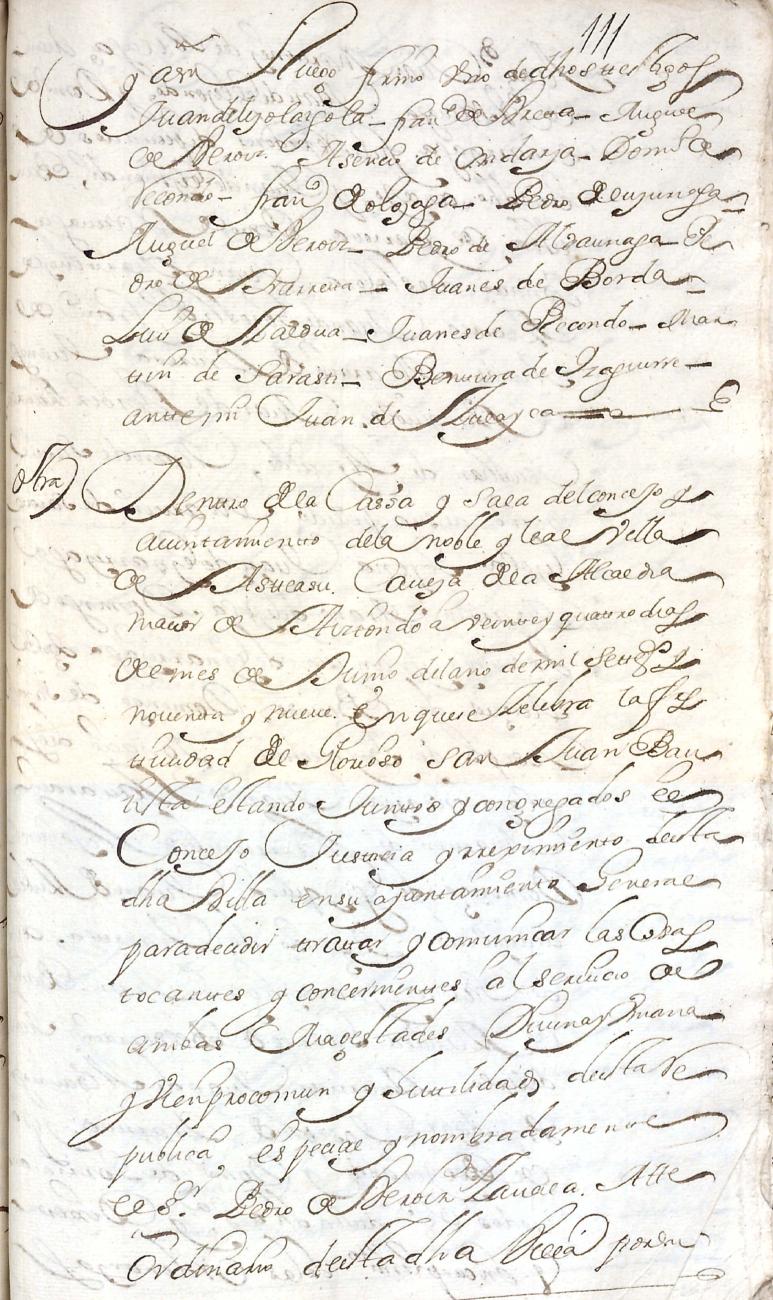 111
y a su Ruego firmo Vno de dhos testigos
Juan de lizolaysola – franco de Vrreta – Miguel
de Beroiz Asencio de Ondarza – Domo de
Recondo – franco de olozaga – Pedro de
Miguel de Beroiz – Pedro de Aldaunaga – Pe
dro de Ibarreta – Juanes de Borda –
Luis de Zaldua – Juanes de Recondo – Mar
tin de Sarasti – Bentura de Izaguirre –
ante mi Juan de
Otra
Dentro de la Cassa y sala del concejo y
aiuntamiento de la noble y leal Villa
de Asteasu Caveza de la Alcaldia
maior de Aiztondo a veinte y quattro dias
del mes de Junio del año de mil settos y
noventa y nueve. En que se Zelebra la festi
tiuidad del Glorioso san Juan Bau
tista estando Juntos y congregados el
Concejo Justicia y rreximiento desta
dha Billa en su ajuntamiento General
para decidir tratar y comunicar las Cosas
tocantes y concernientes al seruicio de
ambas Magestades Diuina y Vmana
y Vien procomun y Hutilidad desta Re
publica especial y nombradamente
el Sr. Pedro de Beroiz Zaudea. Alle
Ordinario desta dha Villa por su